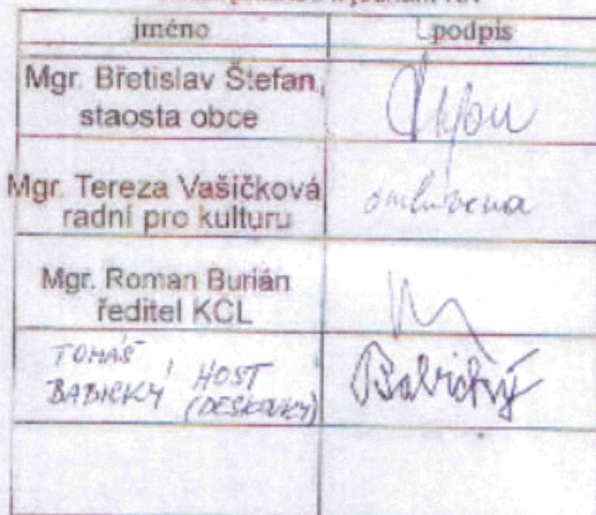 jméno
podpis
Mgr. Břetislav Štefan,
staosta obce
Mgr. Tereza Vašíčková
radní pro kulturu
omluvena
Mgr. Roman Burián
ředitel KCL
TOMÁŠ
BABICKÝ, HOST
(DESKOVKY)
Babický